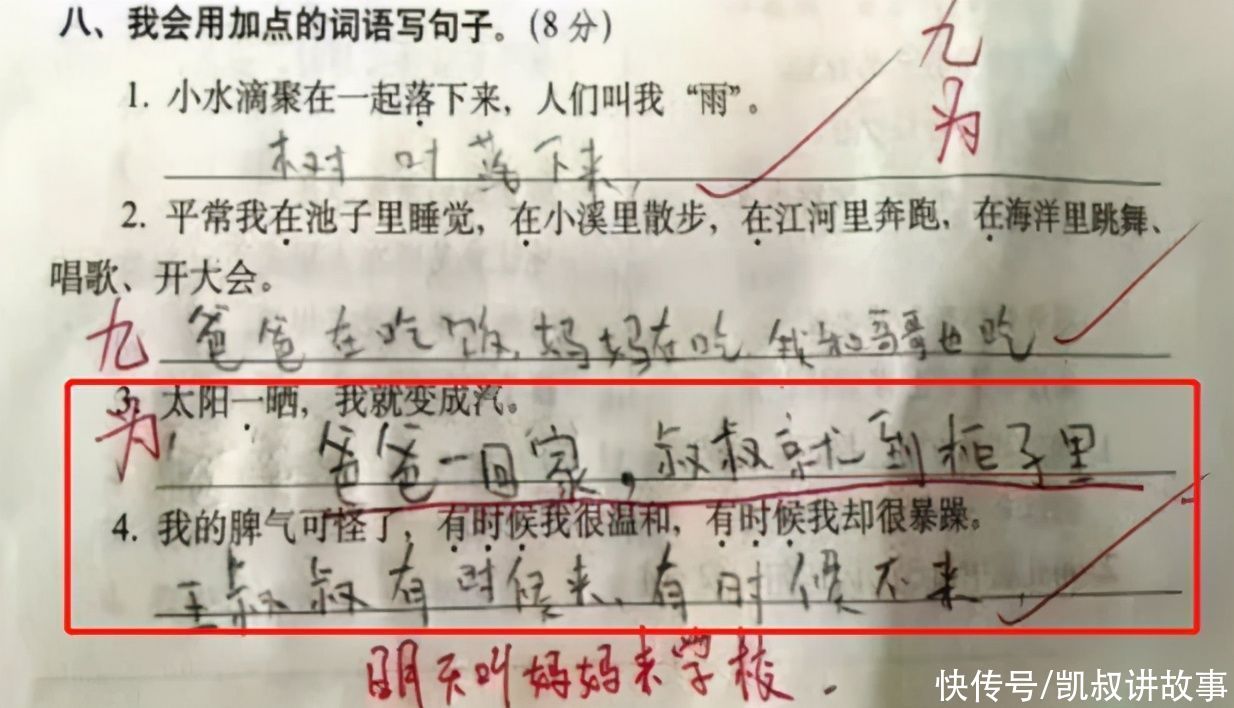 八、我会用加点的词语写句子。(8分)
1. 小水滴聚在一起落下来，人们叫我“雨”。
树叶落下来，
2. 平常我在池子里睡觉，在小溪里散步，在江河里奔跑，在海洋里跳舞、
唱歌、开大会。
爸爸在吃饭，妈妈在吃，我和哥哥也吃
3. 太阳一晒，我就变成汽。
爸爸一回家，叔叔就到柜子里
4. 我的脾气可怪了，有时候我很温和，有时候我却很暴躁。
王叔叔有时候来、有时候不来
明天叫妈妈来学校.
快传号/凯叔讲故事